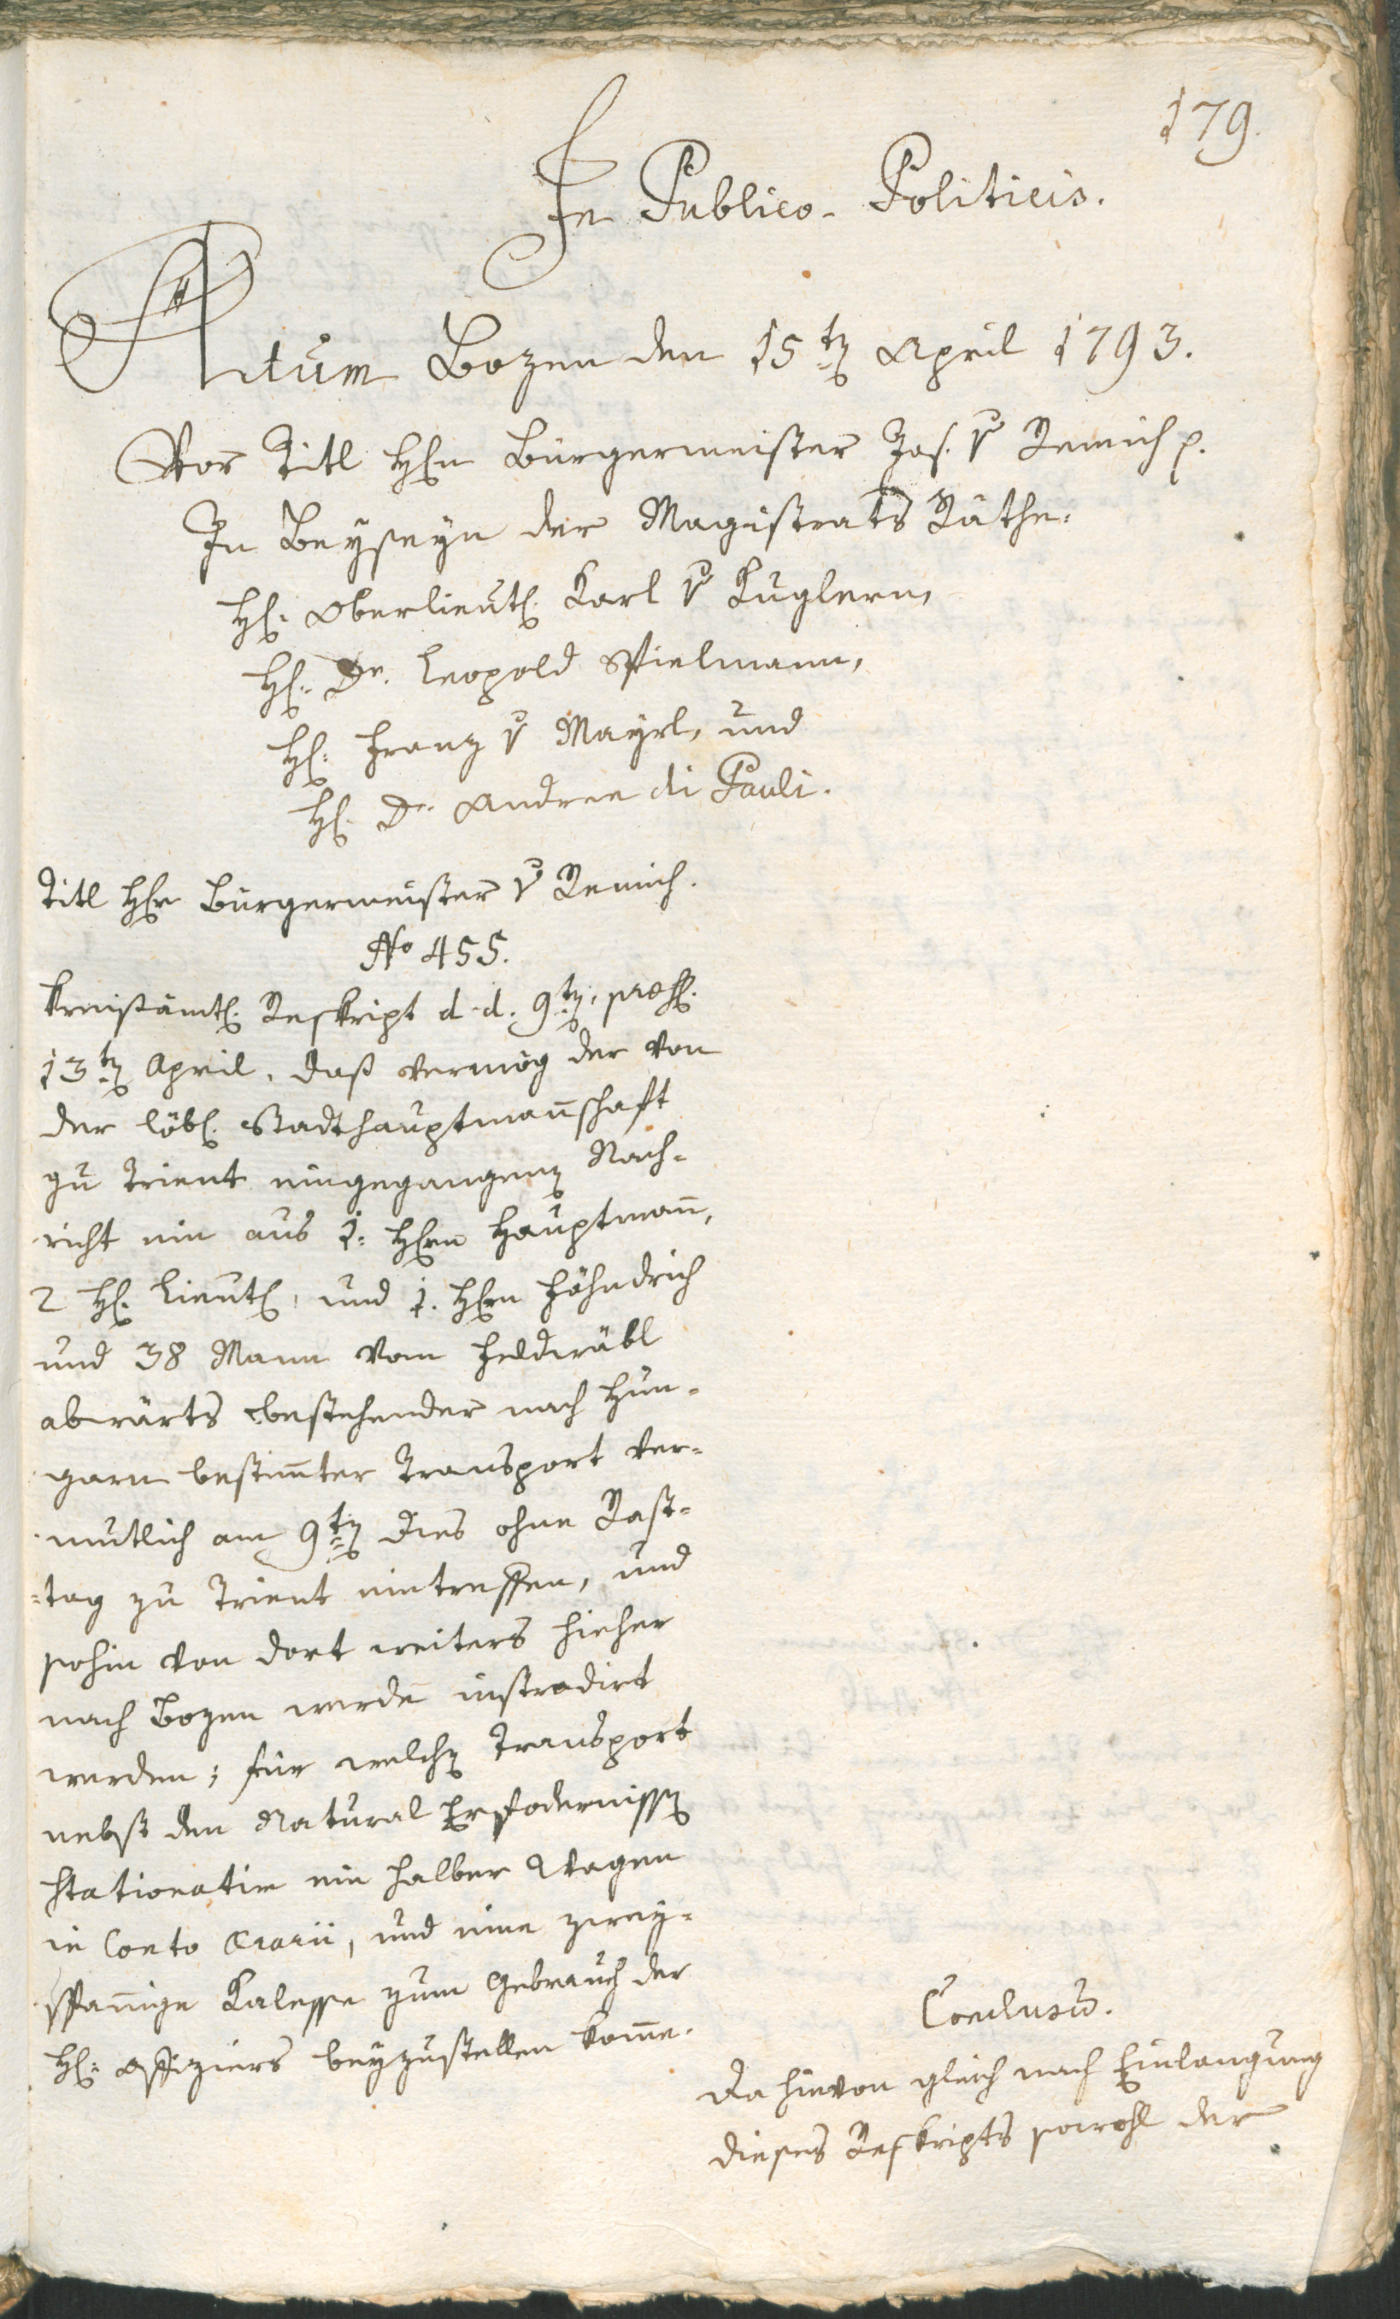 179.
In Publico-Politicis.
Actum Bozen den 15tn April 1793.
Vor Titl Hhn Bürgermeister Jos. v Remich p.
In Beyseyn der Magistrats Räthe.
Hl: Oberlieutl. Karl v Kuglern,
Hl: Dr. Leopold Spielmann,
Hl: Franz v Mayrl, und
Hl: Dr. Andree di Pauli.
Titl Hhr Bürgermeister v Remich.
No 455.
Kreisämtl. Reskript d. d. 9tn, præs.
13tn April, daß vermög der von
der löbl. Stadthauptmañschaft
zu Trient eingegangenen Nach-
richt ein aus 1: Hhrn Hauptmañ,
2 Hl. Lieutl, und 1. Hhrn Fähndrich
und 38 Mann vom Feldwäbl
abwärts bestehender nach Hun-
garn bestim̃ter Transport ver-
mutlich am 9tn dies ohne Rast-
=tag zu Trient eintreffen, und
sohin von dort weiters hieher
nach Bozen werde instradirt
werden; für welchen Transport
nebst den Natural Erfodernissen
stationatim ein halber Wagen
in Conto Ærarii, und eine zwey-
spañige Kalesse zum Gebrauch der
Hl: Offiziers beyzustellen kom̃e.
Conclusum.
Da hievon gleich nach Einlangung
dieses Reskripts sowohl der